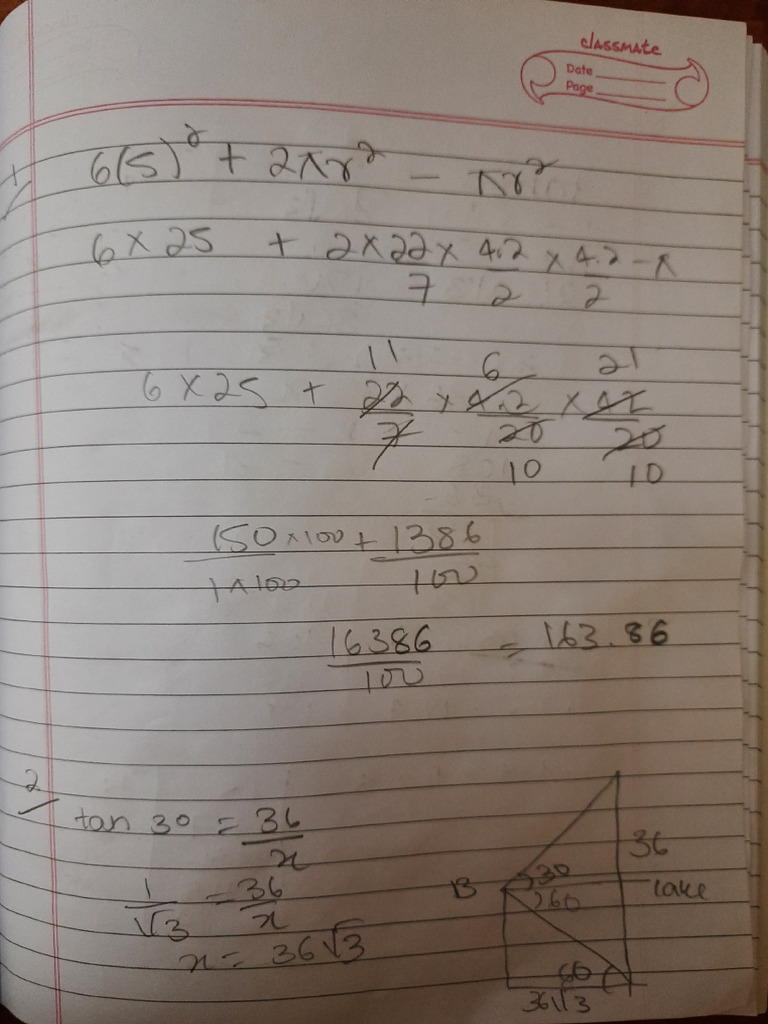 classmate
Date
Page
1 6(5)² + 2πr² - πr²
6 × 25 + 2 × 22/7 × 4.2/2 × 4.2/2 - π
11 6 21
6 × 25 + 22/7 × 4.2/20 × 42/20
10 10
150 × 100 + 1386
1 × 100 100
16386/100 = 163.86
2 tan 30 = 36/x
1/√3 = 36/x
x = 36√3
36
30
B lake
60
60
36√3